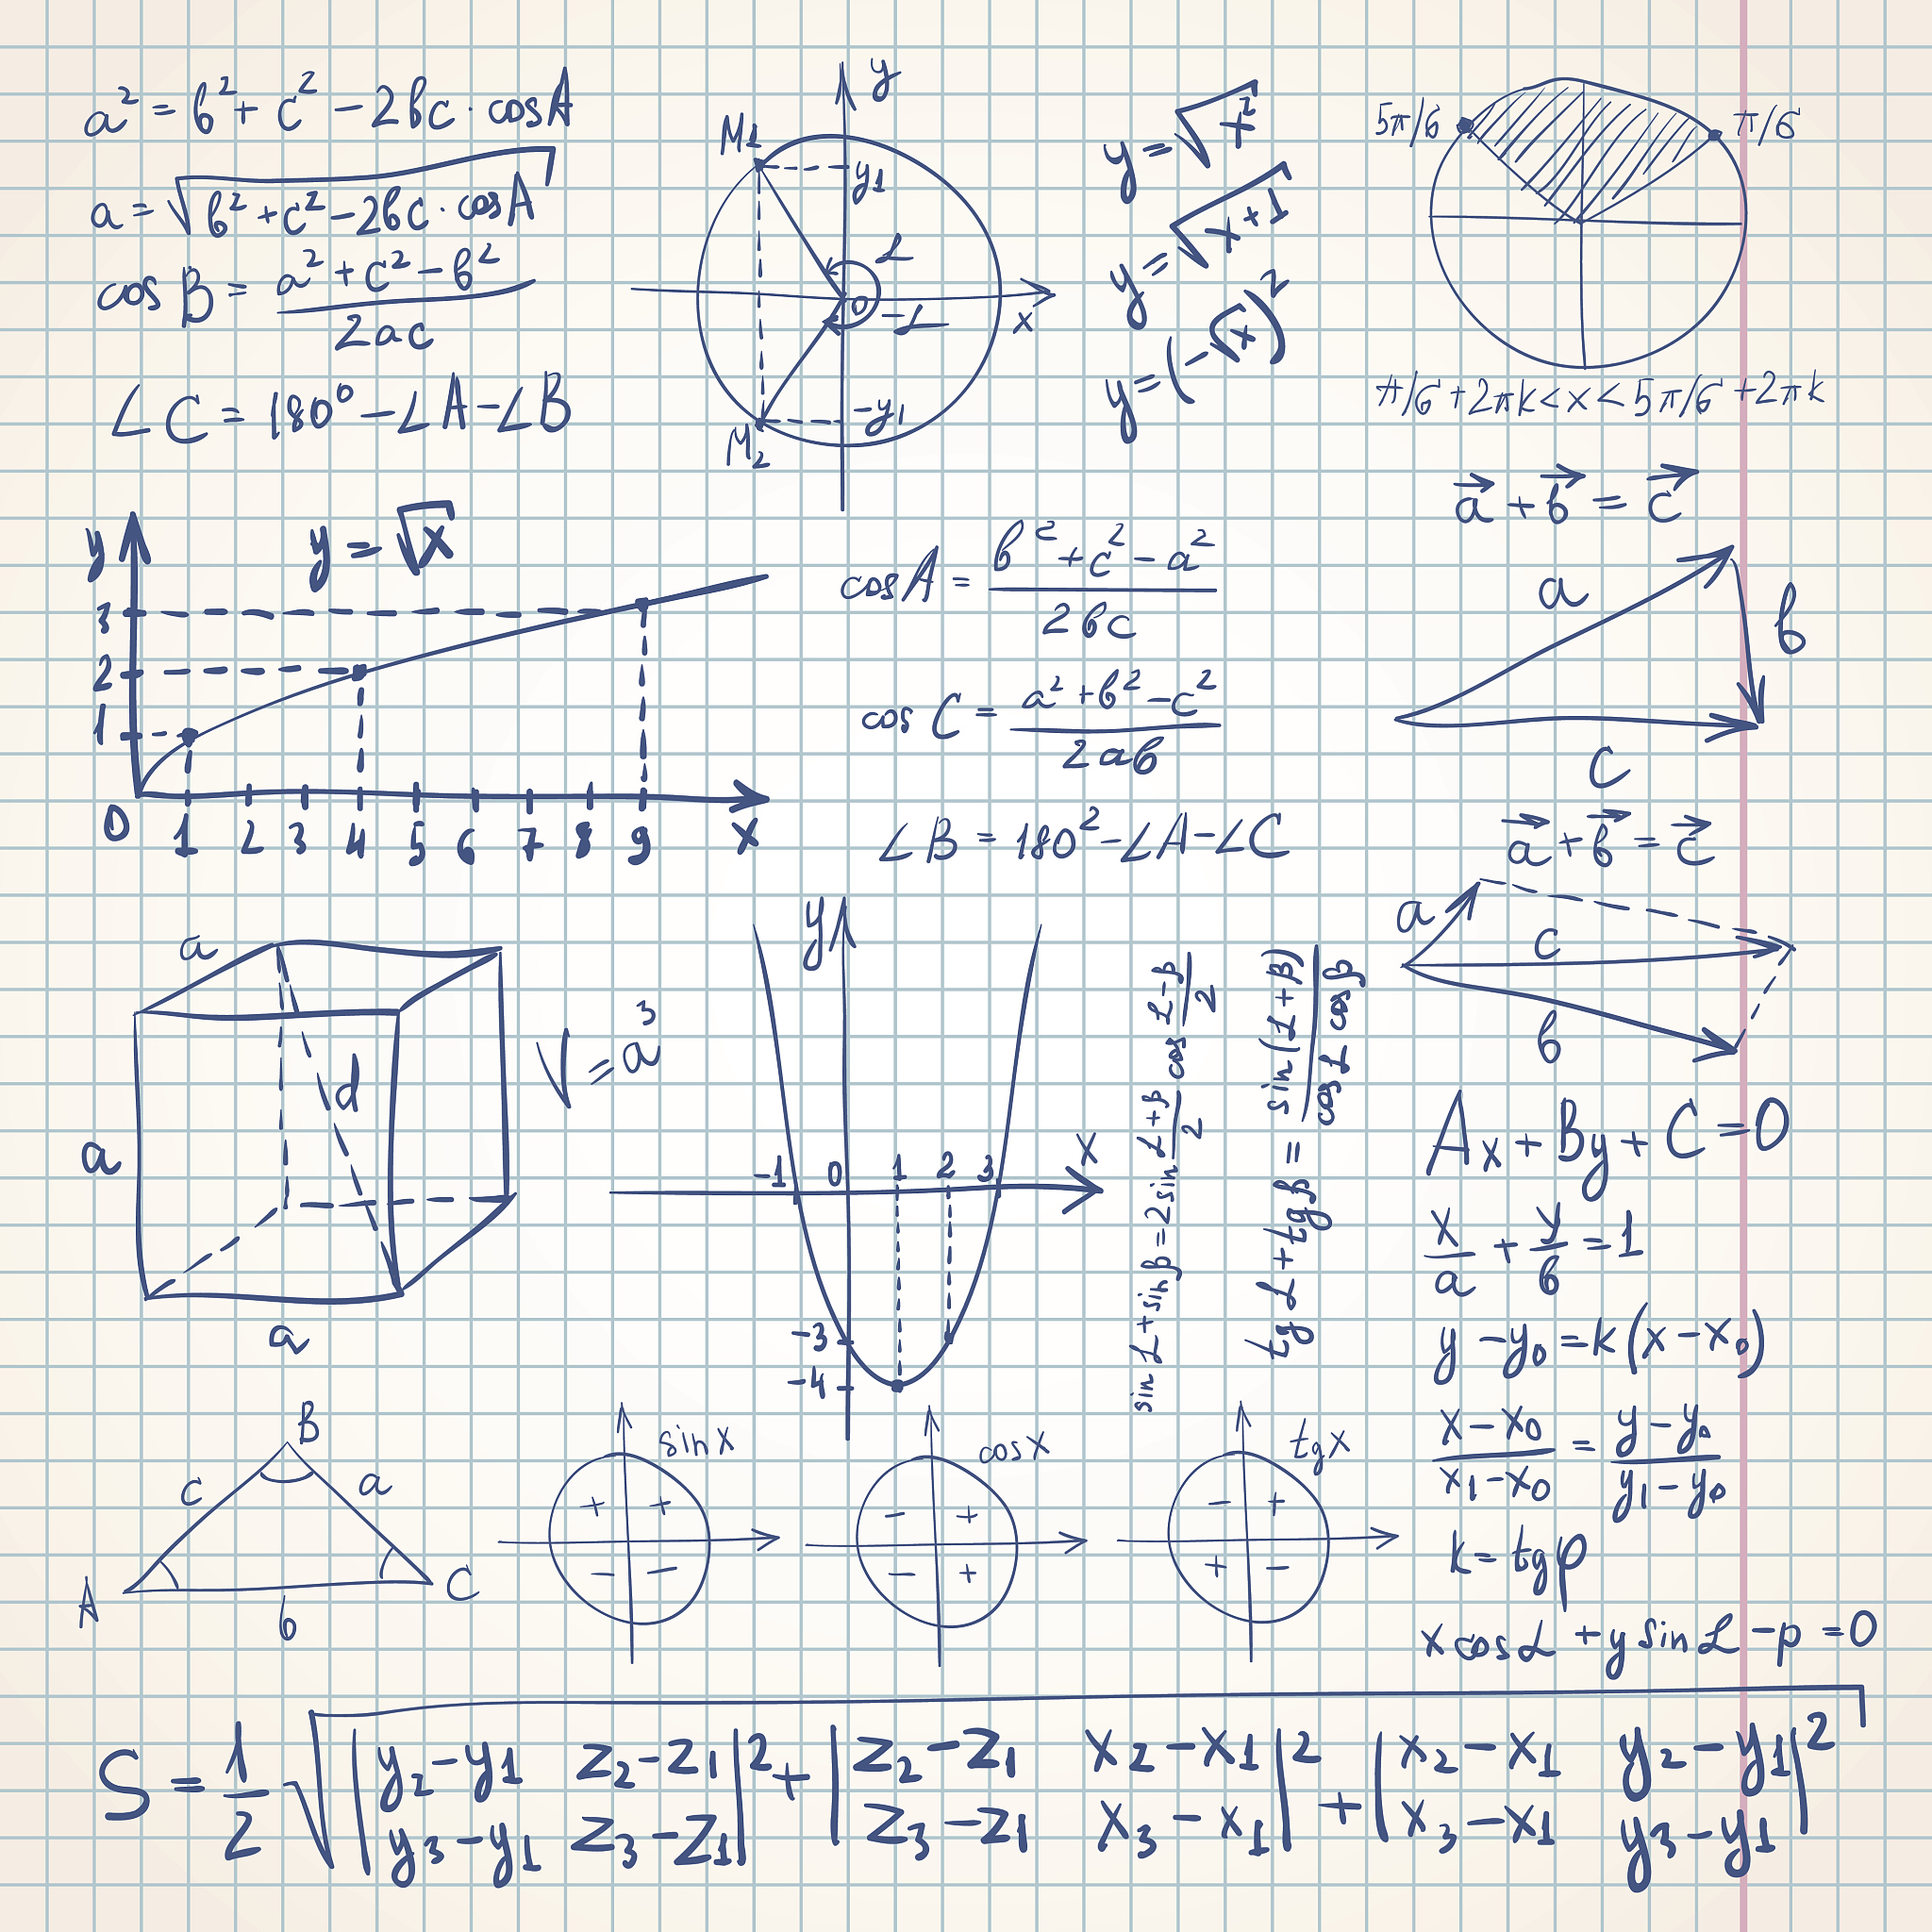 a² = b² + c² − 2bc · cosA
a = √(b² + c² − 2bc · cosA)
cos B = (a² + c² − b²) / 2ac
∠C = 180⁰ − ∠A − ∠B
y
M1
y1
L
0
−L
x
−y1
M2
y = √x²
y = √x+1
y = (−√x)²
5π/6
π/6
π/6 + 2πk < x < 5π/6 + 2πk
y
y = √x
3
2
1
0 1 2 3 4 5 6 7 8 9 x
cosA = (b² + c² − a²) / 2bc
cos C = (a² + b² − c²) / 2ab
∠B = 180² − ∠A − ∠C
a⃗ + b⃗ = c⃗
a
b
c
a⃗ + b⃗ = c⃗
a
c
b
a
d
a
a
V = a³
y
−1 0 1 2 3 x
−3
−4
sin L + sin β = 2 sin (L+β)/2 cos (L−β)/2
tg L + tg β = sin(L + β) / cos L cos β
Ax + By + C = 0
x/a + y/b = 1
y − y₀ = k(x − x₀)
(x − x₀)/(x₁ − x₀) = (y − y₀)/(y₁ − y₀)
k = tg φ
x cos L + y sin L − p = 0
B
c
a
A
b
C
sin x
+ +
− −
cos x
− +
− +
tg x
− +
+ −
S = 1/2 √( |y₂ − y₁ z₂ − z₁|² + |z₂ − z₁ x₂ − x₁|² + |x₂ − x₁ y₂ − y₁|²
y₃ − y₁ z₃ − z₁ z₃ − z₁ x₃ − x₁ x₃ − x₁ y₃ − y₁